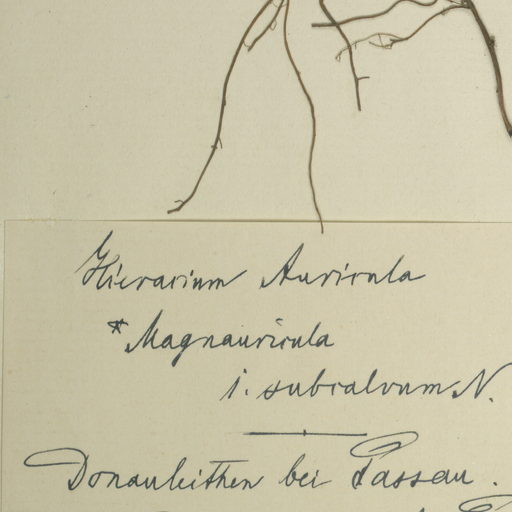 Hieracium Auricula
*Magnauricula
i. subcalvum N.
Donauleithen bei Passau.